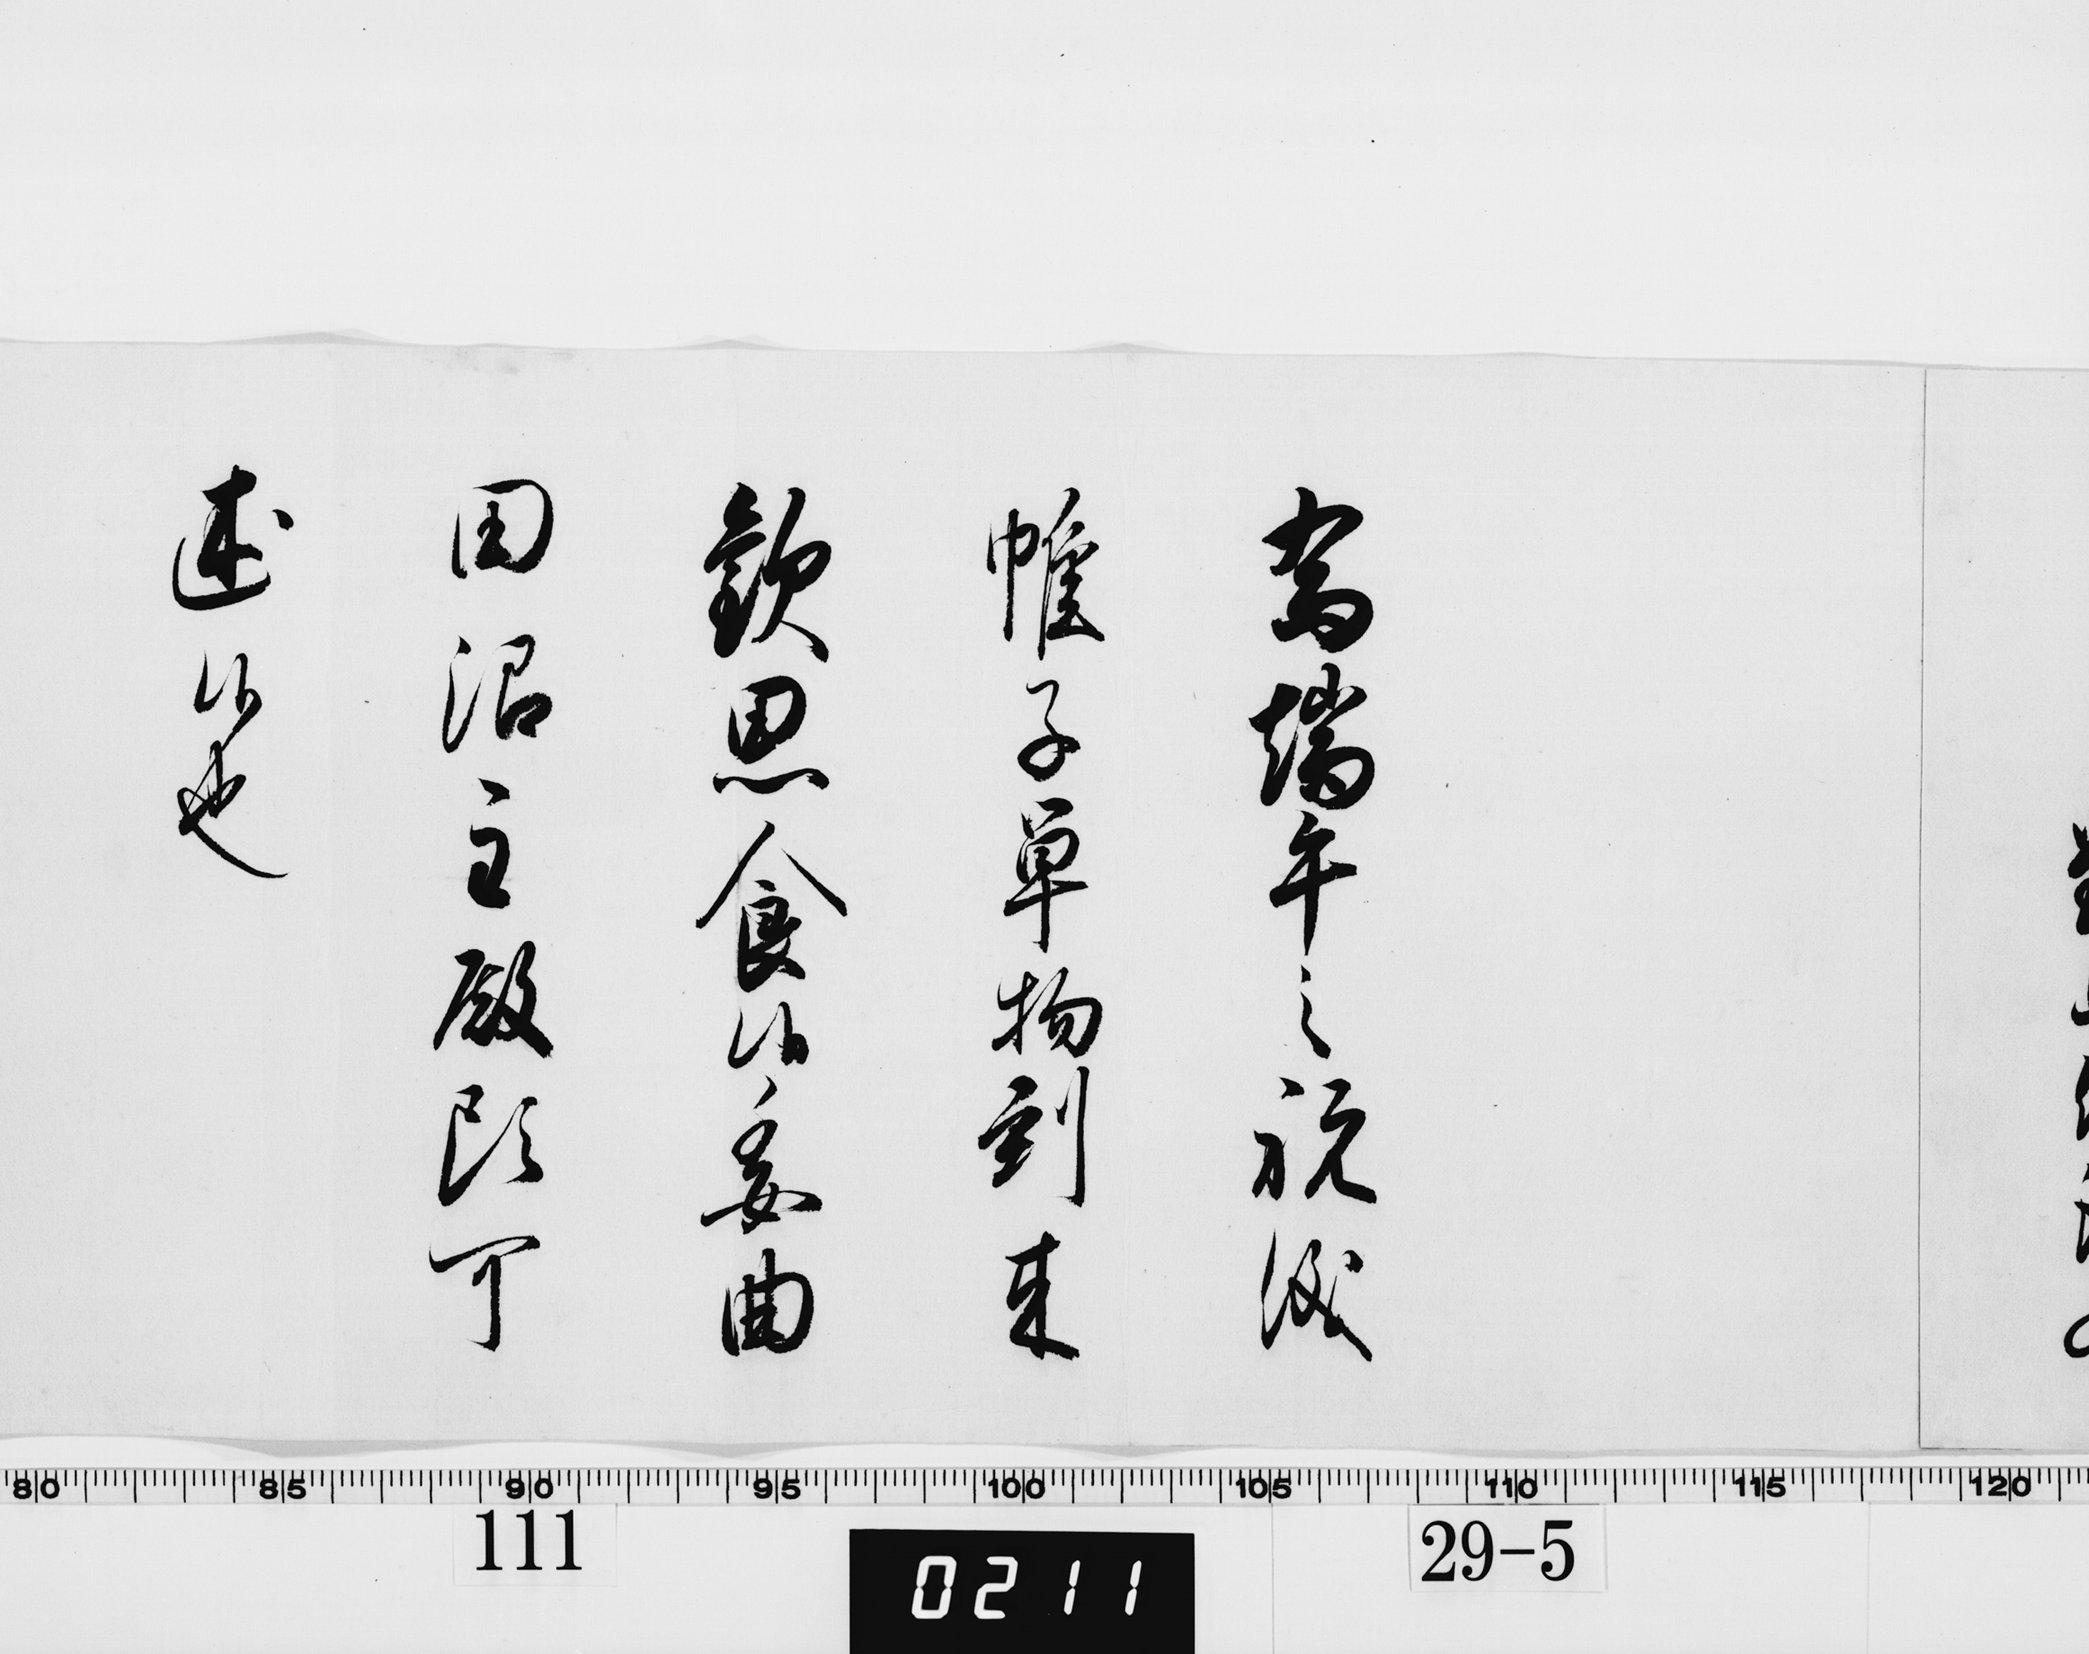 為端午之祝儀
帷子単物到来
歓思食候委曲
田沼主殿頭可
述候也
80 85 90 95 100 105 110 115 120
111
0211
29-5